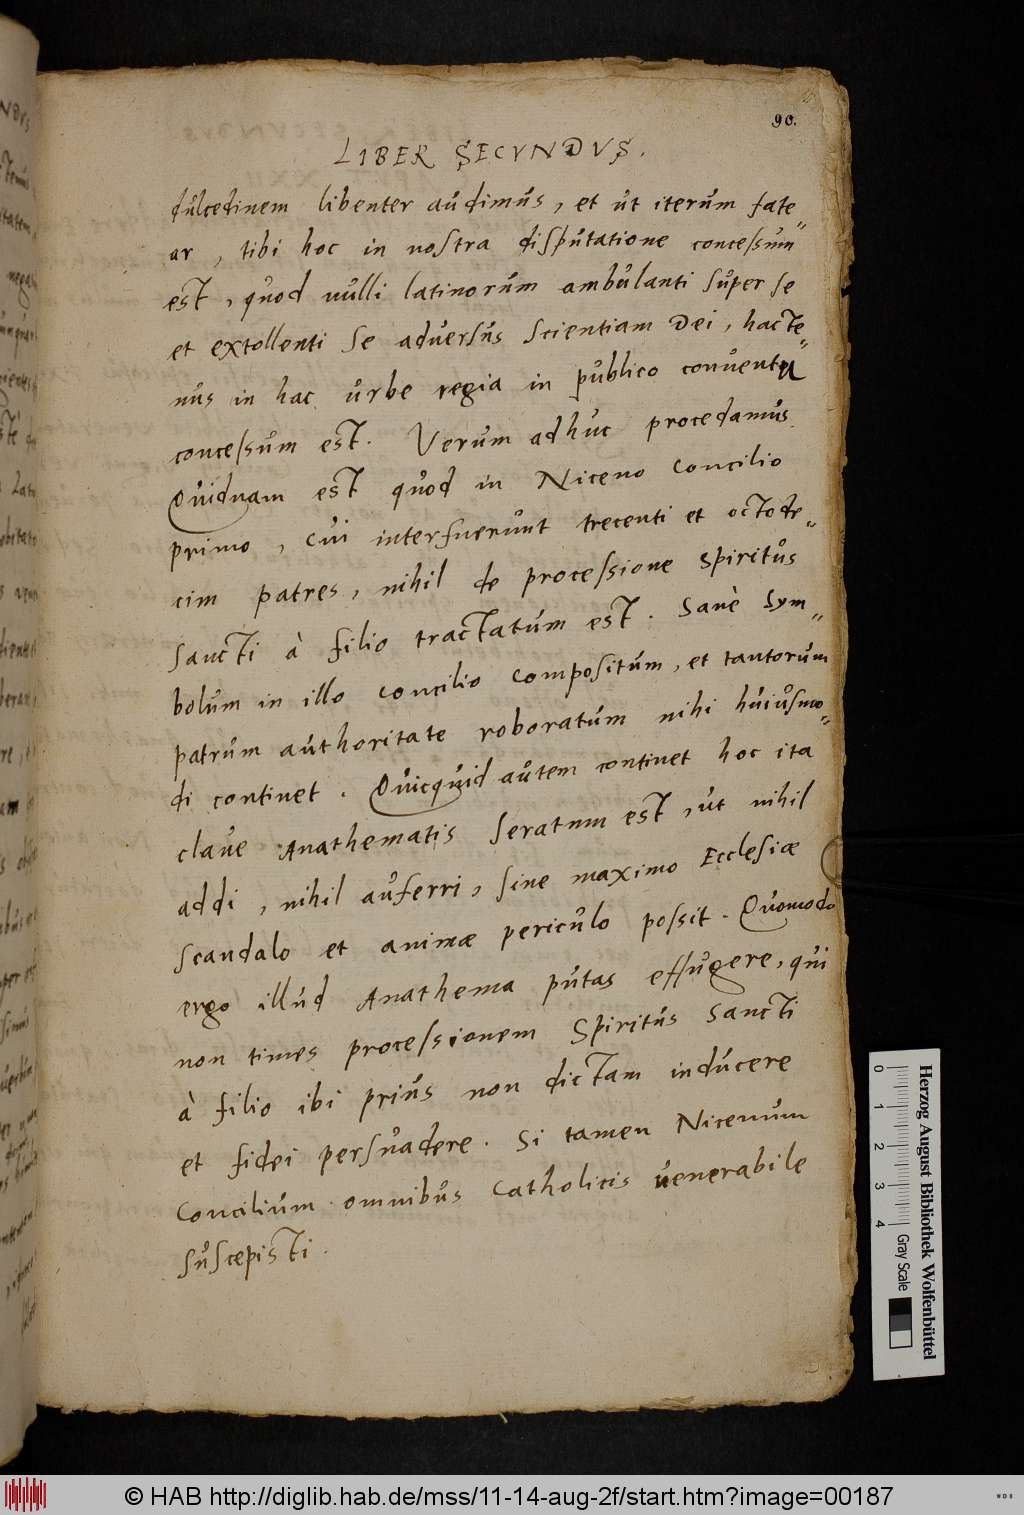 90.
LIBER SECVNDVS.
dulcedinem libenter audimus, et ut iterum fate„
ar, tibi hoc in nostra disputatione concessum
est, quod nulli latinorum ambulanti super se
et extollenti se adversus scientiam Dei, hacte„
nus in hac urbe regia in publico conventu
concessum est. Verum adhuc procedamus.
Quidnam est quod in Niceno concilio
primo, cui interfuerunt trecenti et octode„
cim patres, nihil de processione spiritus
sancti à filio tractatum est. Sanè sym„
bolum in illo concilio compositum, et tantorum
patrum authoritate roboratum nihi huiusmo„
di continet. Quicquid autem continet hoc ita
clave Anathematis seratum est, ut nihil
addi, nihil auferri, sine maximo Ecclesiæ
scandalo et animæ periculo possit. Quomodo
ergo illud Anathema putas effugere, qui
non times processionem Spiritus sancti
à filio ibi prius non dictam inducere
et fidei persuadere. Si tamen Nicenum
Concilium omnibus catholicis venerabile
suscepisti.
Herzog August Bibliothek Wolfenbüttel
0 1 2 3 4 Gray Scale
© HAB http://diglib.hab.de/mss/11-14-aug-2f/start.htm?image=00187